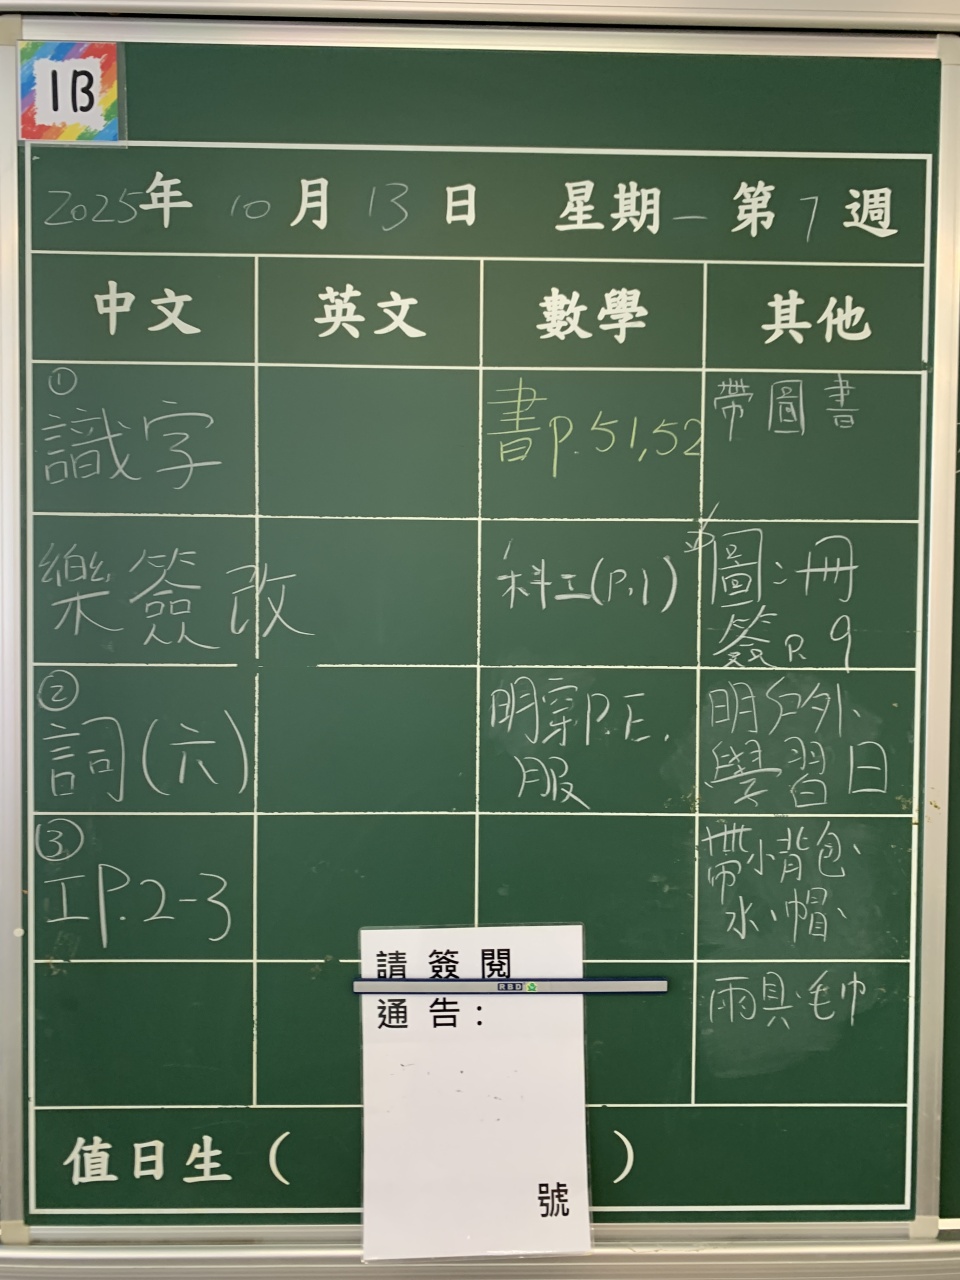 1B
2025年 10月13日 星期一 第7週
中文 英文 數學 其他
①
識字
書P.51,52
帶圖書
樂簽改
科工(P.1)
圖:冊
簽P.9
②
詞(六)
明穿P.E.
服
明戶外
學習日
③
工P.2-3
帶小背包、
水、帽、
雨具、毛巾
請簽閱
RBD
通告:
號
值日生( )